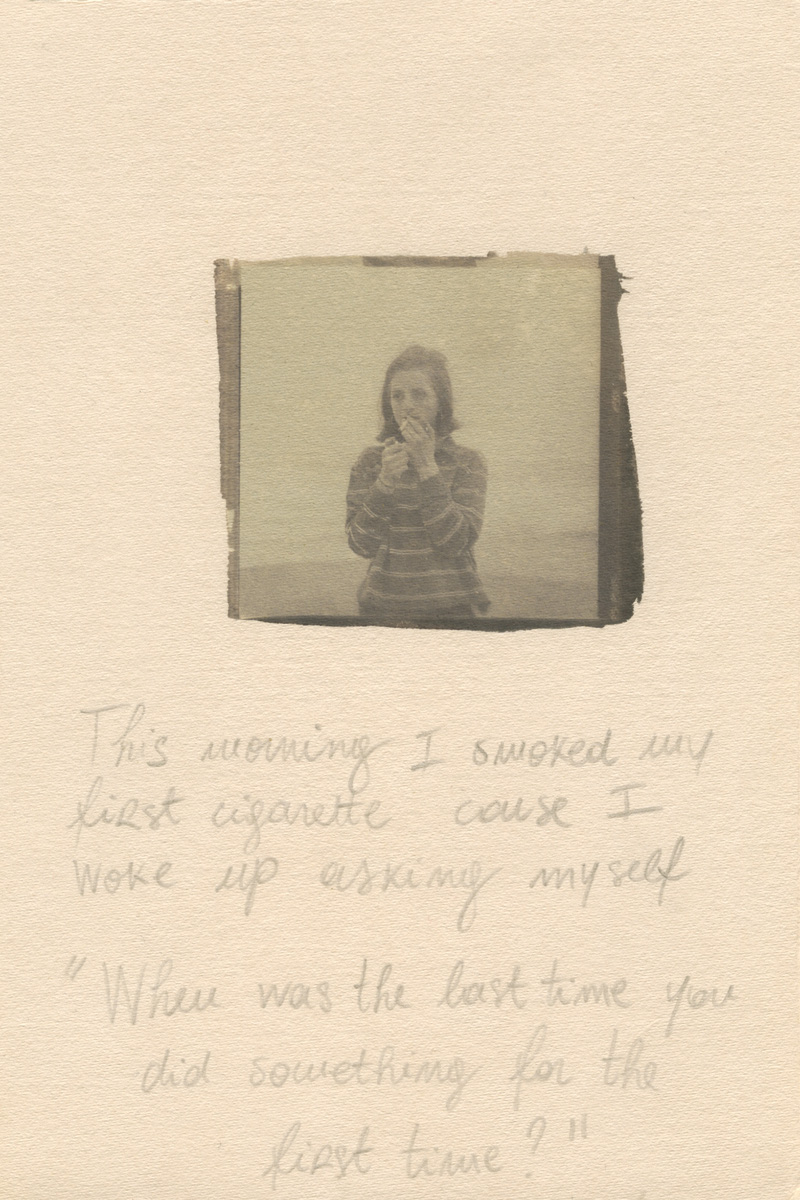 This morning I smoked my
first cigarette 'cause I
woke up asking myself
"When was the last time you
did something for the
first time?"